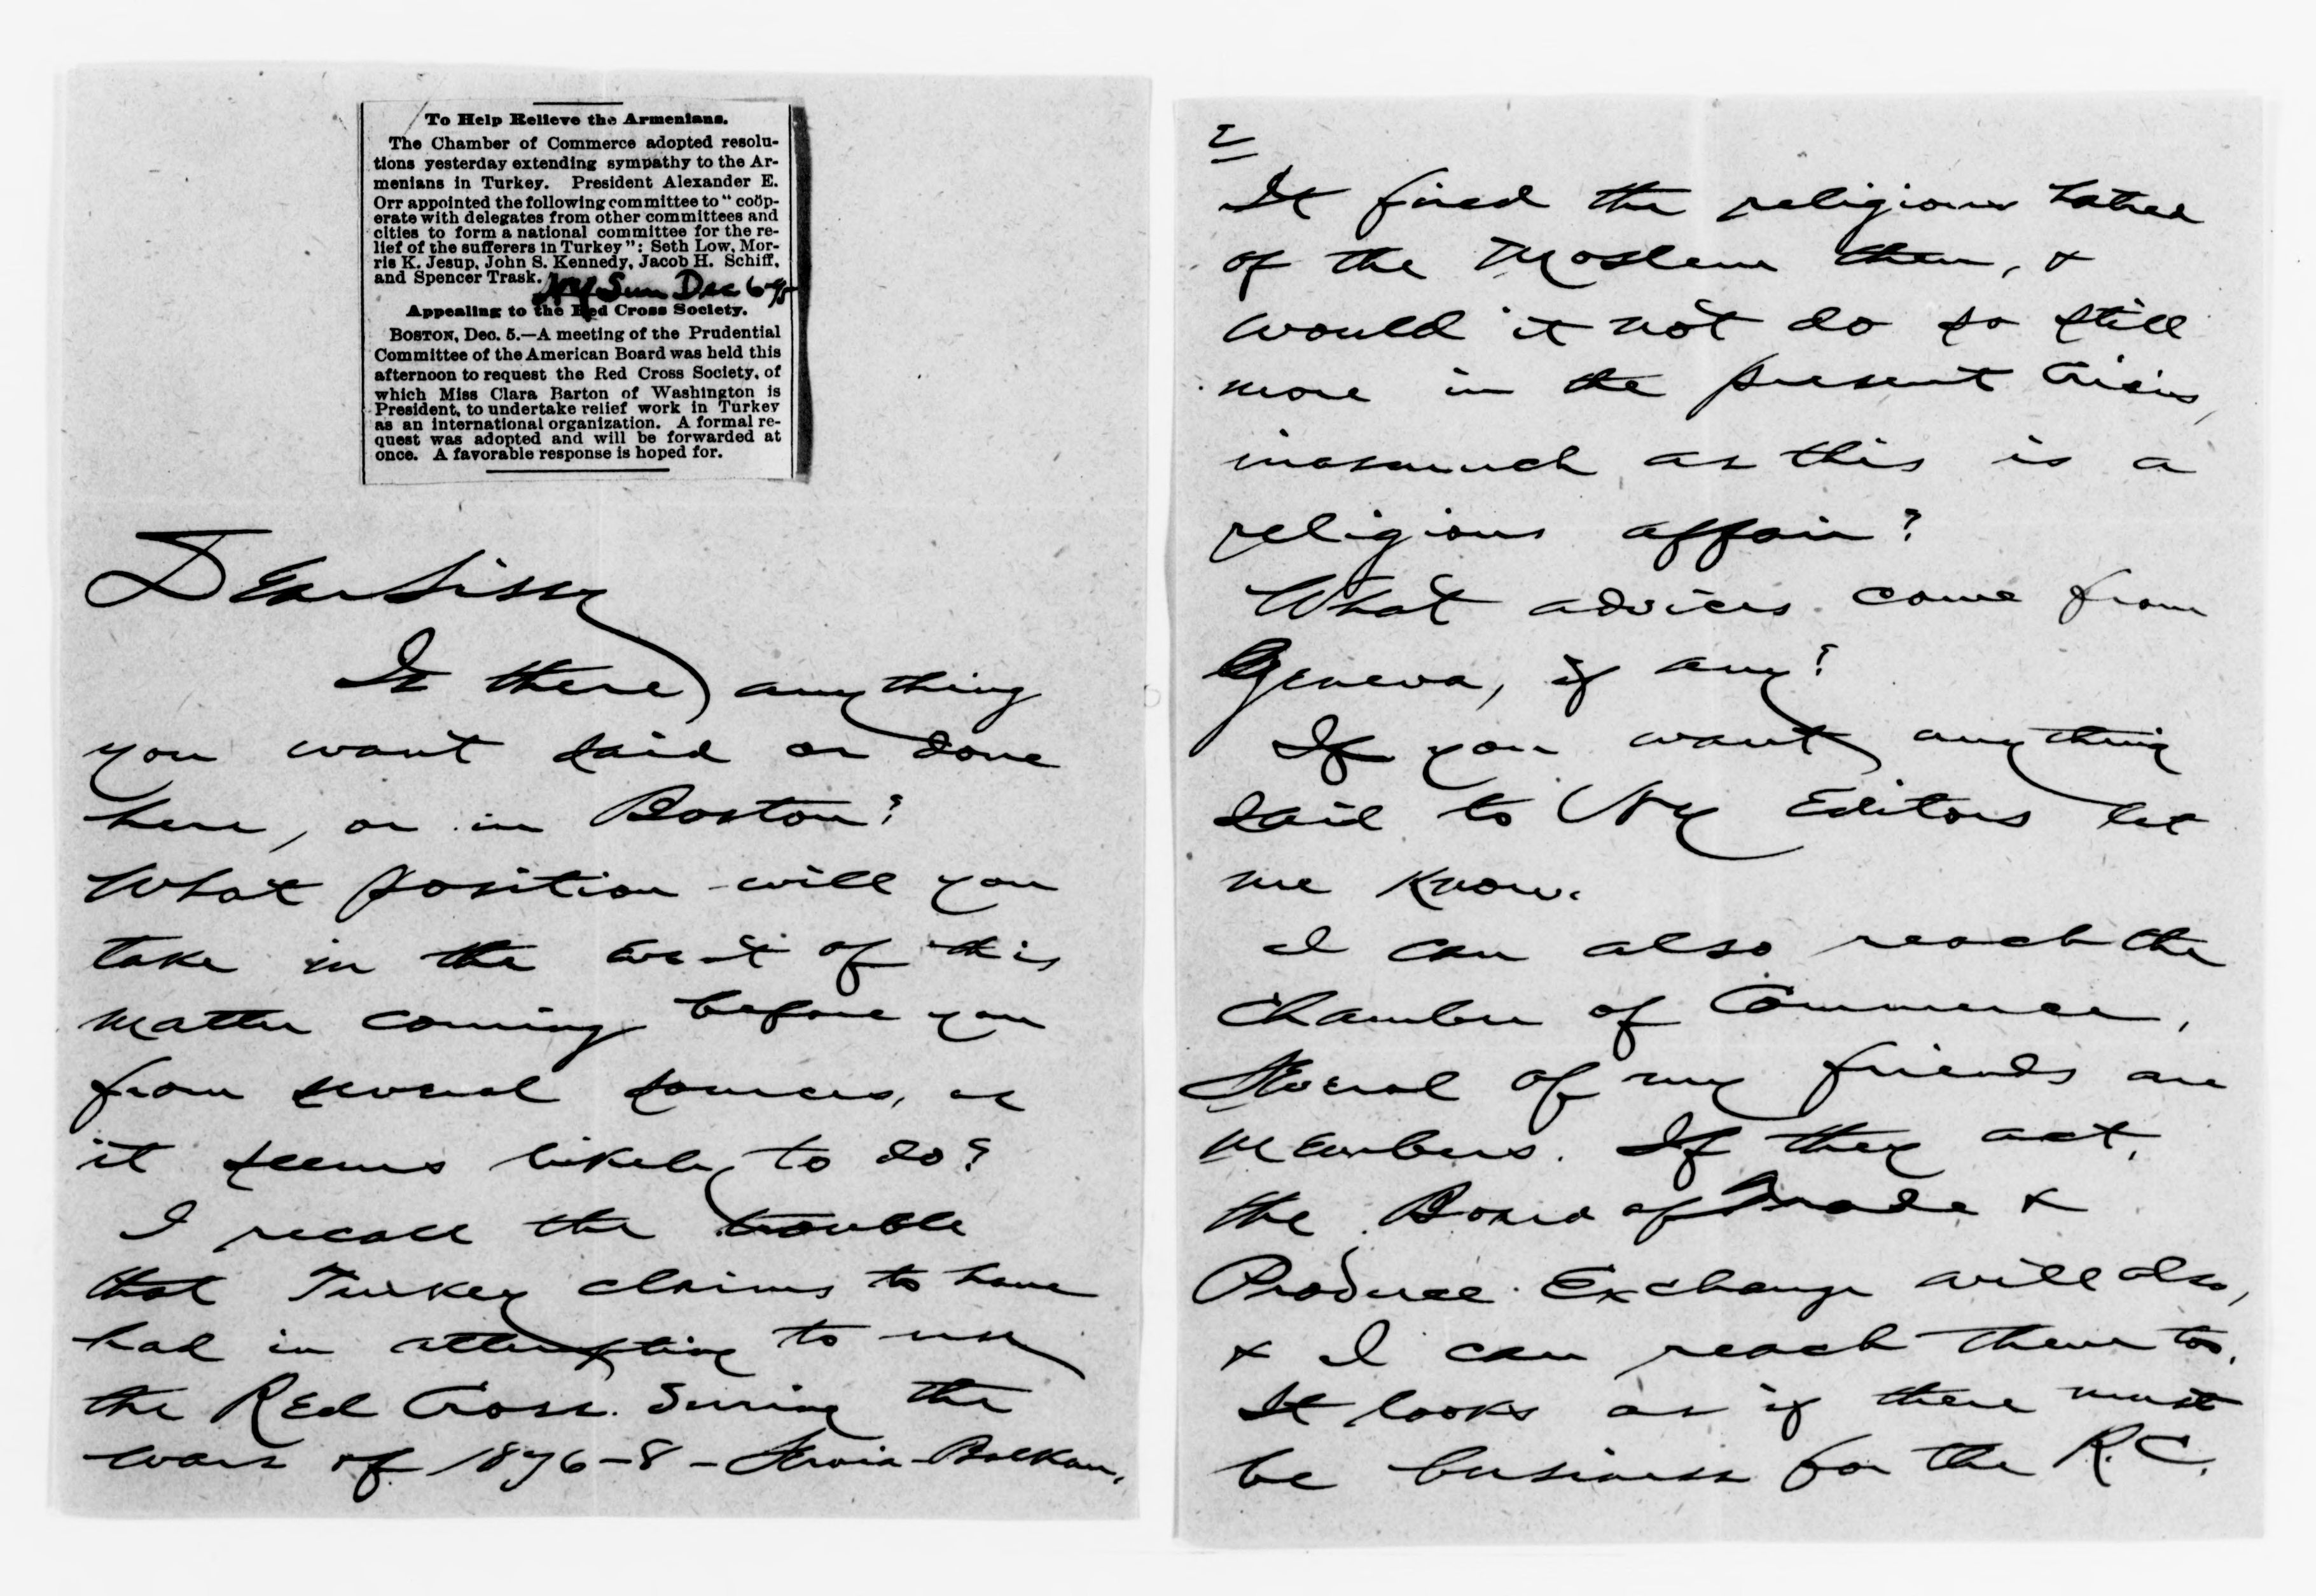 To Help Relieve the Armenians.
The Chamber of Commerce adopted resolu-
tions yesterday extending sympathy to the Ar-
menians in Turkey. President Alexander E.
Orr appointed the following committee to "coöp-
erate with delegates from other committees and
cities to form a national committee for the re-
lief of the sufferers in Turkey": Seth Low, Mor-
ris K. Jesup, John S. Kennedy, Jacob H. Schiff,
and Spencer Trask.
NY Sun Dec 6-95
Appealing to the Red Cross Society.
BOSTON, Dec. 5.—A meeting of the Prudential
Committee of the American Board was held this
afternoon to request the Red Cross Society, of
which Miss Clara Barton of Washington is
President, to undertake relief work in Turkey
as an international organization. A formal re-
quest was adopted and will be forwarded at
once. A favorable response is hoped for.
Dear Sissy
Is there anything
you want said or done
here, or in Boston?
What position will you
take in the event of this
matter coming before you
from several sources, as
it seems likely to do?
I recall the trouble
that Turkey claims to have
had in attempting to use
the Red Cross during the
wars of 1876-8 - Servia-Balkan.
2
It fired the religious hatred
of the Moslem then, &
would it not do so still
more in the present crisis,
inasmuch as this is a
religious affair?
What advices come from
Geneva, if any?
If you want anything
said to NY Editors let
me know.
I can also reach the
Chamber of Commerce,
several of my friends are
members. If they act,
the Board of Trade &
Produce Exchange will also,
& I can reach them too.
It looks as if there must
be business for the R.C.